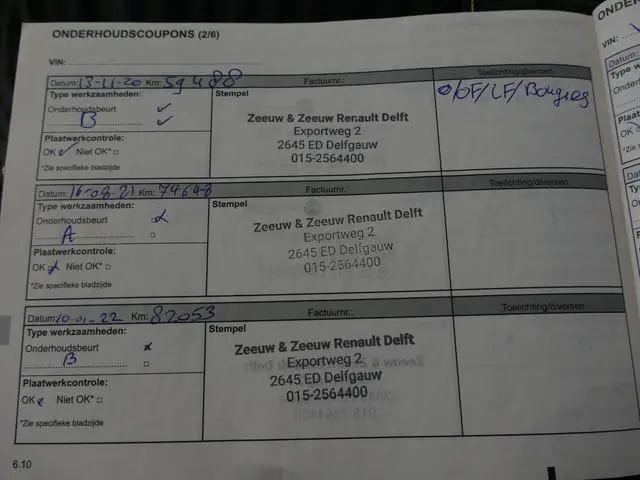 ONDERHOUDSCOUPONS (2/6)
VIN:
Datum: 13-11-20 Km: 59488 Factuurnr.: Toelichting/diversen
Type werkzaamheden:
Onderhoudsbeurt ✓
B ✓
Plaatwerkcontrole:
OK ✓ Niet OK* □
*Zie specifieke bladzijde
Stempel
Zeeuw & Zeeuw Renault Delft
Exportweg 2
2645 ED Delfgauw
015-2564400
O/OF/LF/Bougies
Datum: 16-08-21 Km: 74648 Factuurnr.: Toelichting/diversen
Type werkzaamheden:
Onderhoudsbeurt
A □
Plaatwerkcontrole:
OK Niet OK* □
*Zie specifieke bladzijde
Stempel
Zeeuw & Zeeuw Renault Delft
Exportweg 2
2645 ED Delfgauw
015-2564400
Datum: 10-01-22 Km: 82053 Factuurnr.: Toelichting/diversen
Type werkzaamheden:
Onderhoudsbeurt x
B □
Plaatwerkcontrole:
OK Niet OK* □
*Zie specifieke bladzijde
Stempel
Zeeuw & Zeeuw Renault Delft
Exportweg 2
2645 ED Delfgauw
015-2564400
6.10
ONDER
VIN:
Datum: